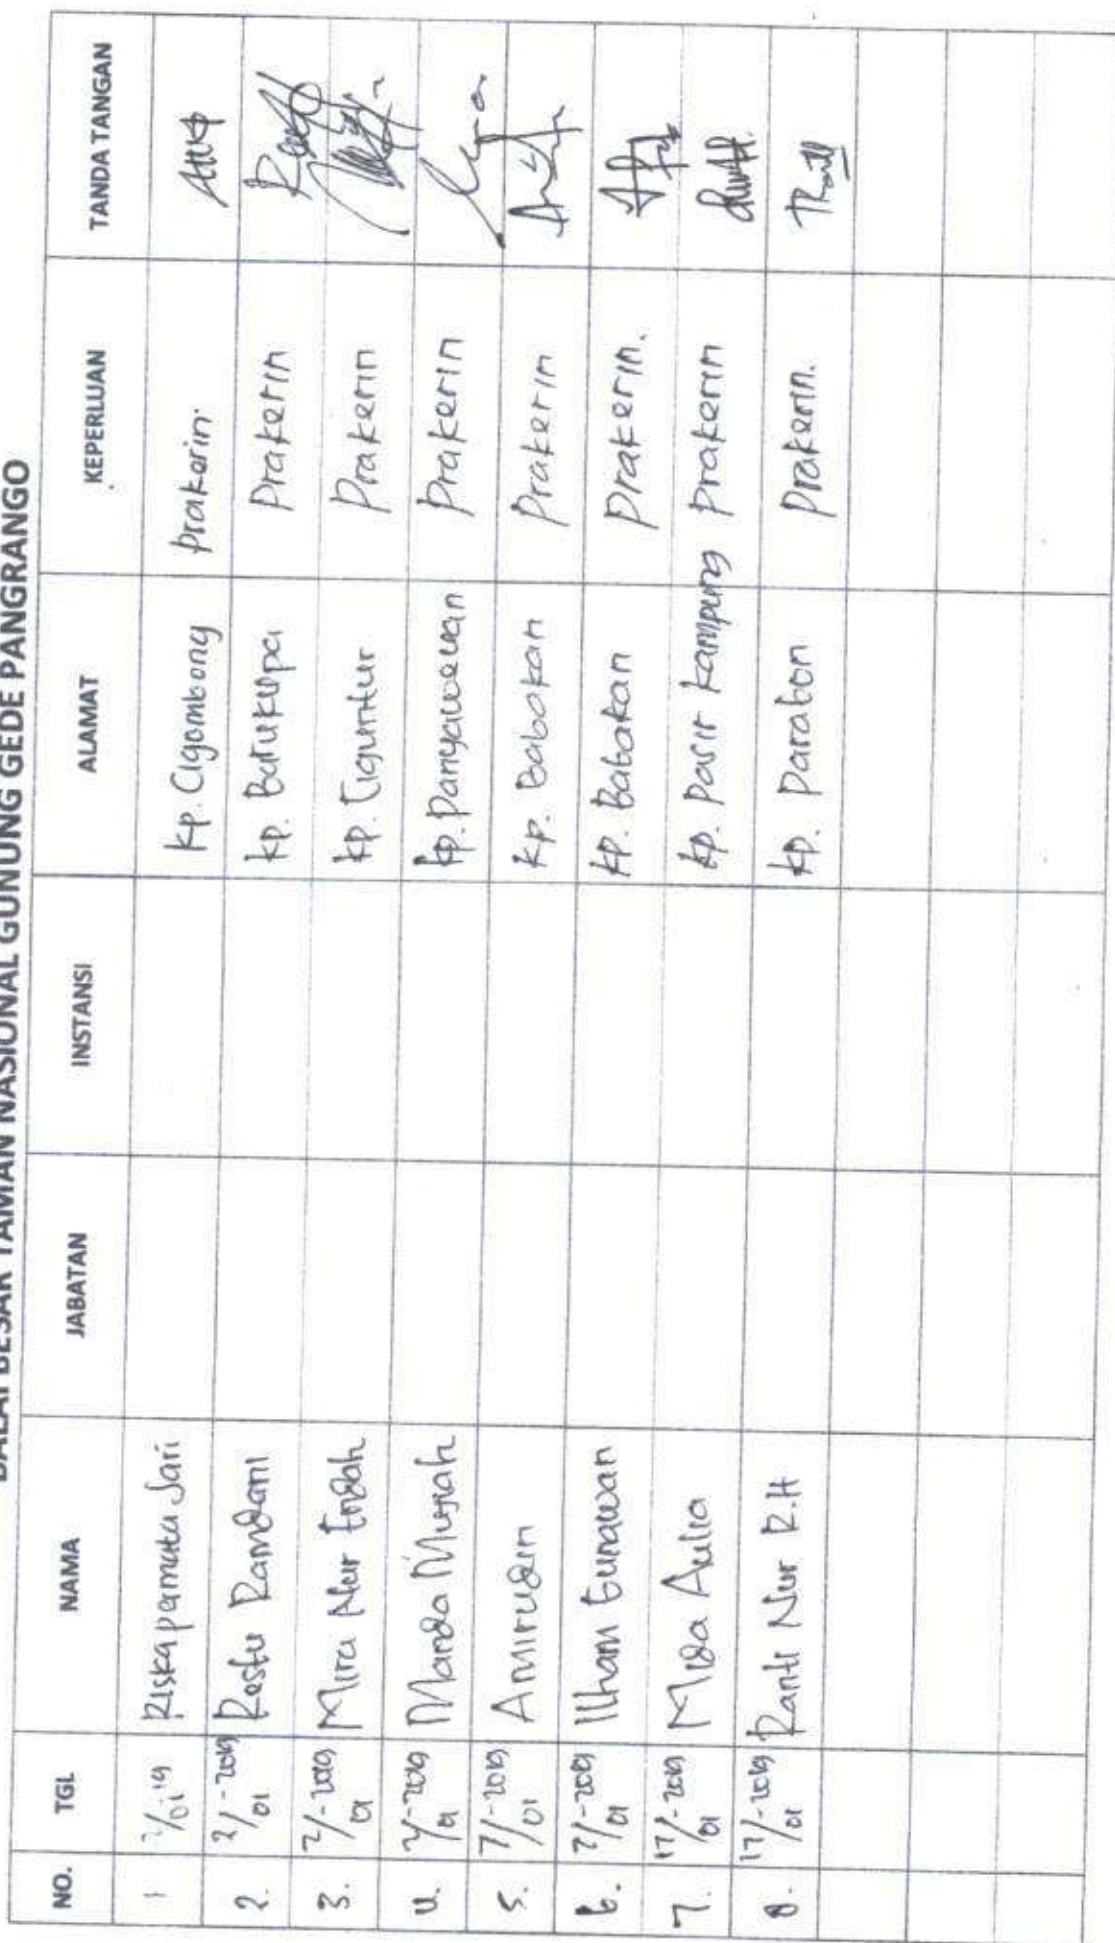 BALAI BESAR TAMAN NASIONAL GUNUNG GEDE PANGRANGO
NO. TGL NAMA JABATAN INSTANSI ALAMAT KEPERLUAN TANDA TANGAN
1 2/01'19 Riska permata Sari Kp. Cigombong prakerin.
2. 2/01-2019 Restu Ramdani kp. Barukupa Prakerin
3. 2/01-2019 Mira Nur Endah kp. Ciguntur Prakerin
4. 2/01-2019 Manda Mujiah kp. Panyaweuan Prakerin
5. 7/01-2019 Amirudin kp. Babakan Prakerin
6. 7/01-2019 Ilham Gunawan kp. Babakan Prakerin.
7. 17/01-2019 Mida Aulia kp. Pasir kampung Prakerin
8. 17/01-2019 Ranti Nur R.H kp. Parabon Prakerin.